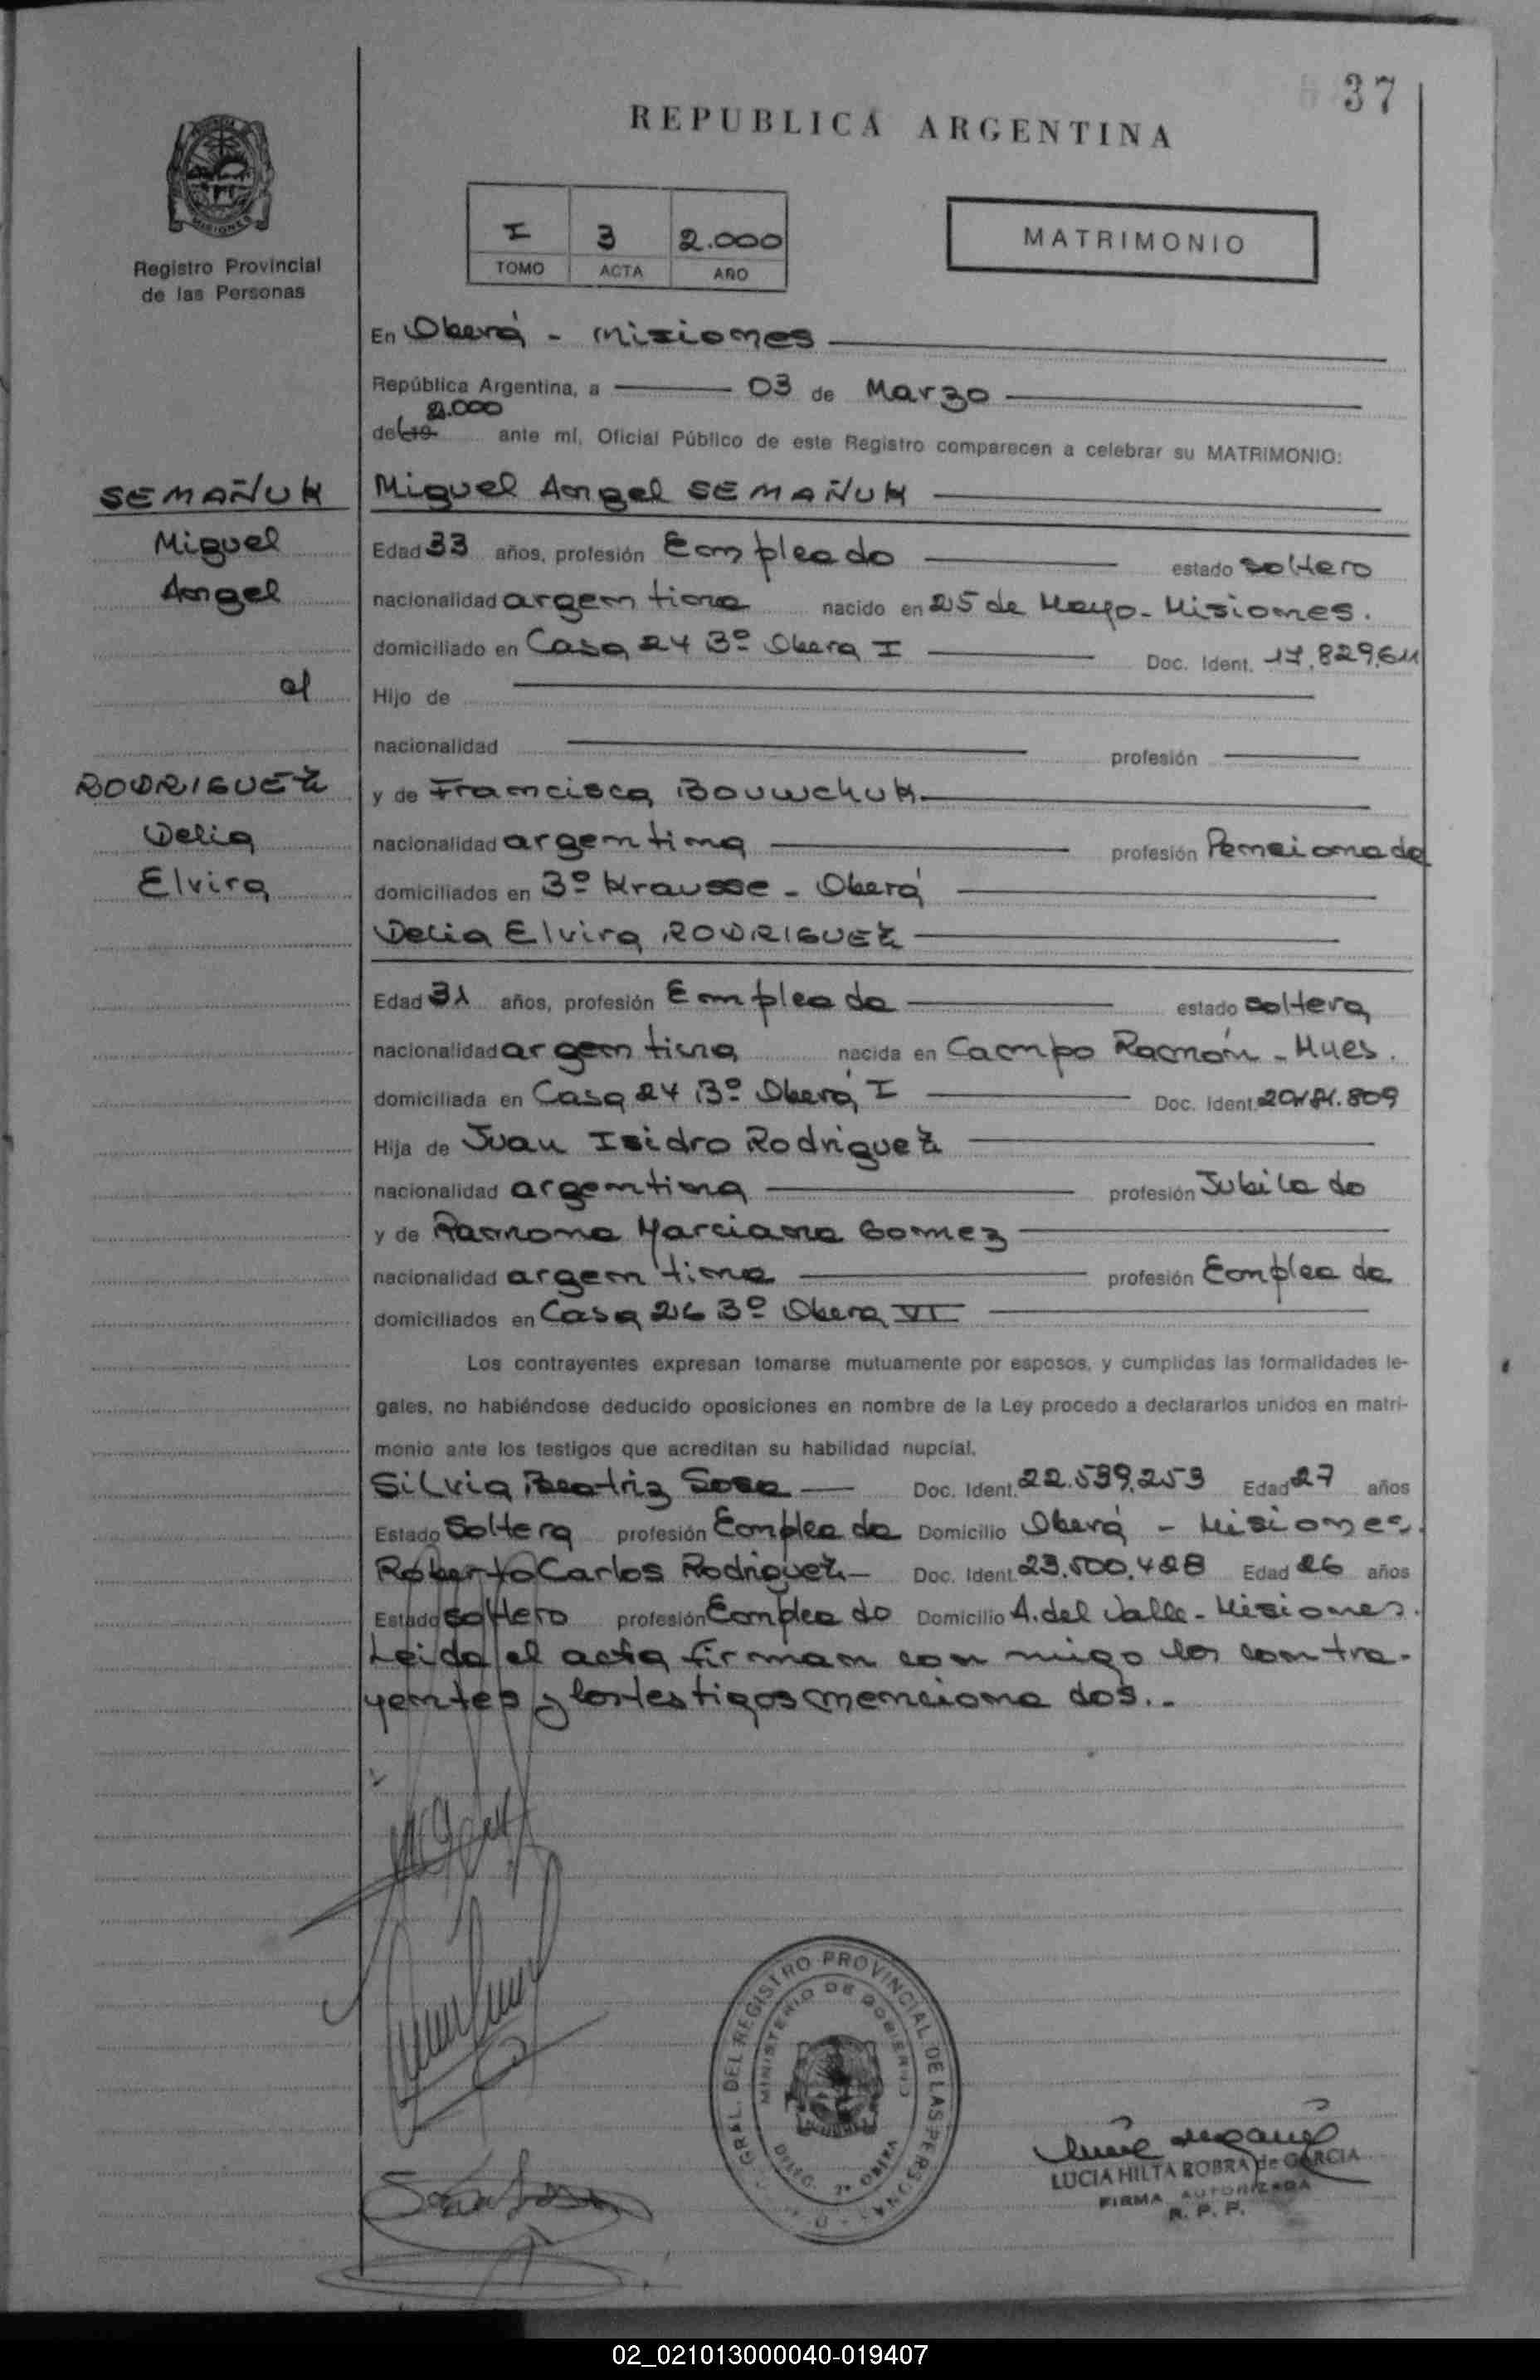 37
REPUBLICA ARGENTINA
MISIONES
Registro Provincial
de las Personas
I 3 2.000
TOMO ACTA AÑO
MATRIMONIO
En Oberá - Misiones
República Argentina, a 03 de Marzo
2.000
del 19 ante mí, Oficial Público de este Registro comparecen a celebrar su MATRIMONIO:
SEMAÑUK
Miguel
Angel
c/
RODRIGUEZ
Delia
Elvira
Miguel Angel SEMAÑUK
Edad 33 años, profesión Empleado estado soltero
nacionalidad argentina nacido en 25 de Mayo - Misiones.
domiciliado en Casa 24 Bº Obera I Doc. Ident. 17.829.611
Hijo de
nacionalidad profesión
y de Francisca Bouwchuk
nacionalidad argentina profesión Pensionada
domiciliados en Bº Krausse - Oberá
Delia Elvira RODRIGUEZ
Edad 31 años, profesión Empleada estado soltera
nacionalidad argentina nacida en Campo Ramón - Mnes.
domiciliada en Casa 24 Bº Oberá I Doc. Ident.
Hija de Juan Isidro Rodriguez
nacionalidad argentina profesión Jubilado
y de Ramona Marciana Gomez
nacionalidad argentina profesión Empleada
domiciliados en Casa 216 Bº Obera VI
Los contrayentes expresan tomarse mutuamente por esposos, y cumplidas las formalidades le-
gales, no habiéndose deducido oposiciones en nombre de la Ley procedo a declararlos unidos en matri-
monio ante los testigos que acreditan su habilidad nupcial.
Silvia Beatriz Sosa Doc. Ident. 22.539.253 Edad 27 años
Estado Soltera profesión Empleada Domicilio Oberá - Misiones.
Roberto Carlos Rodriguez Doc. Ident. 23.500.428 Edad 26 años
Estado soltero profesión Empleado Domicilio A. del Valle - Misiones.
Leida el acta firman con migo los contra-
yentes y los testigos mencionados..
GRAL. DEL REGISTRO PROVINCIAL DE LAS PERSONAS
MINISTERIO DE GOBIERNO
LUCIA HILTA ROBRA de GARCIA
FIRMA AUTORIZADA
R. P. P.
02_021013000040-019407